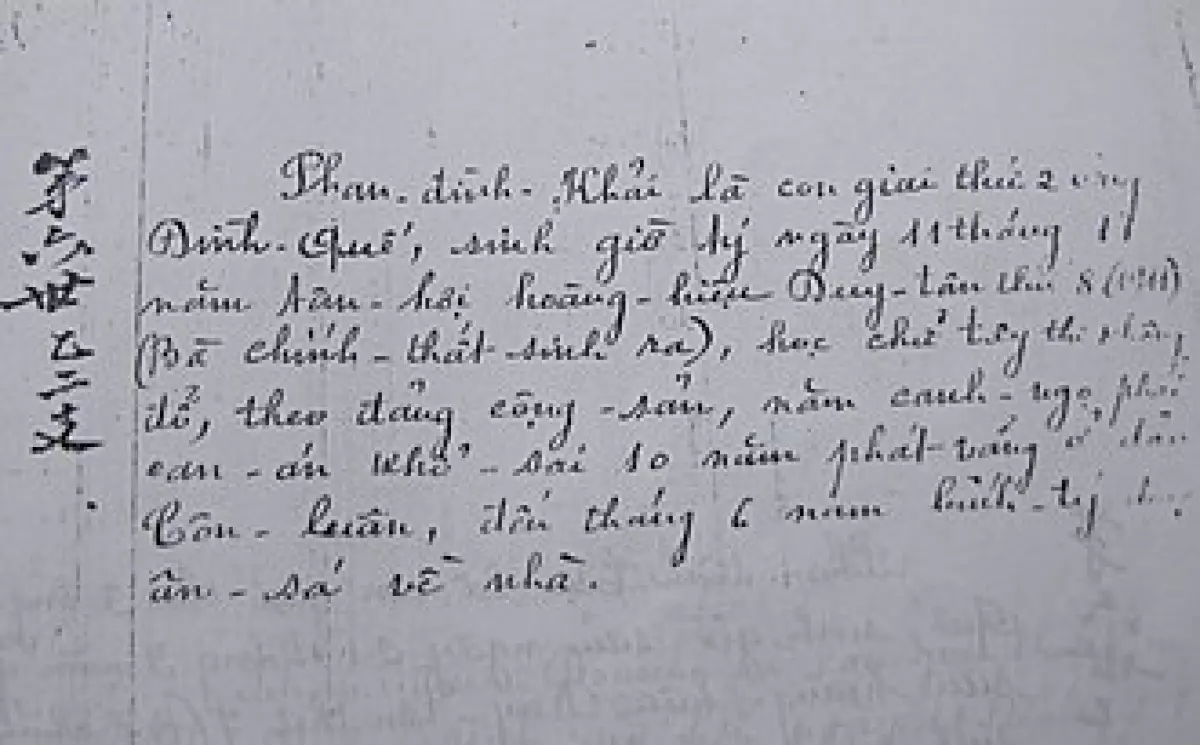 Phan-đình-Khải là con giai thứ 2 ông
Đình-Quế, sinh giờ tý ngày 11 tháng 11
năm tân-hợi hoàng-hiệu Duy-tân thứ 8 (1911)
(Bà chính-thất sinh ra), học chữ tây thi không
đỗ, theo đảng cộng-sản, năm canh-ngọ, phải
can-án khổ-sai 10 năm phát-vãng ở đảo
Côn-luân, đến tháng 6 năm bính-tý
ân-xá về nhà.
六世
二支